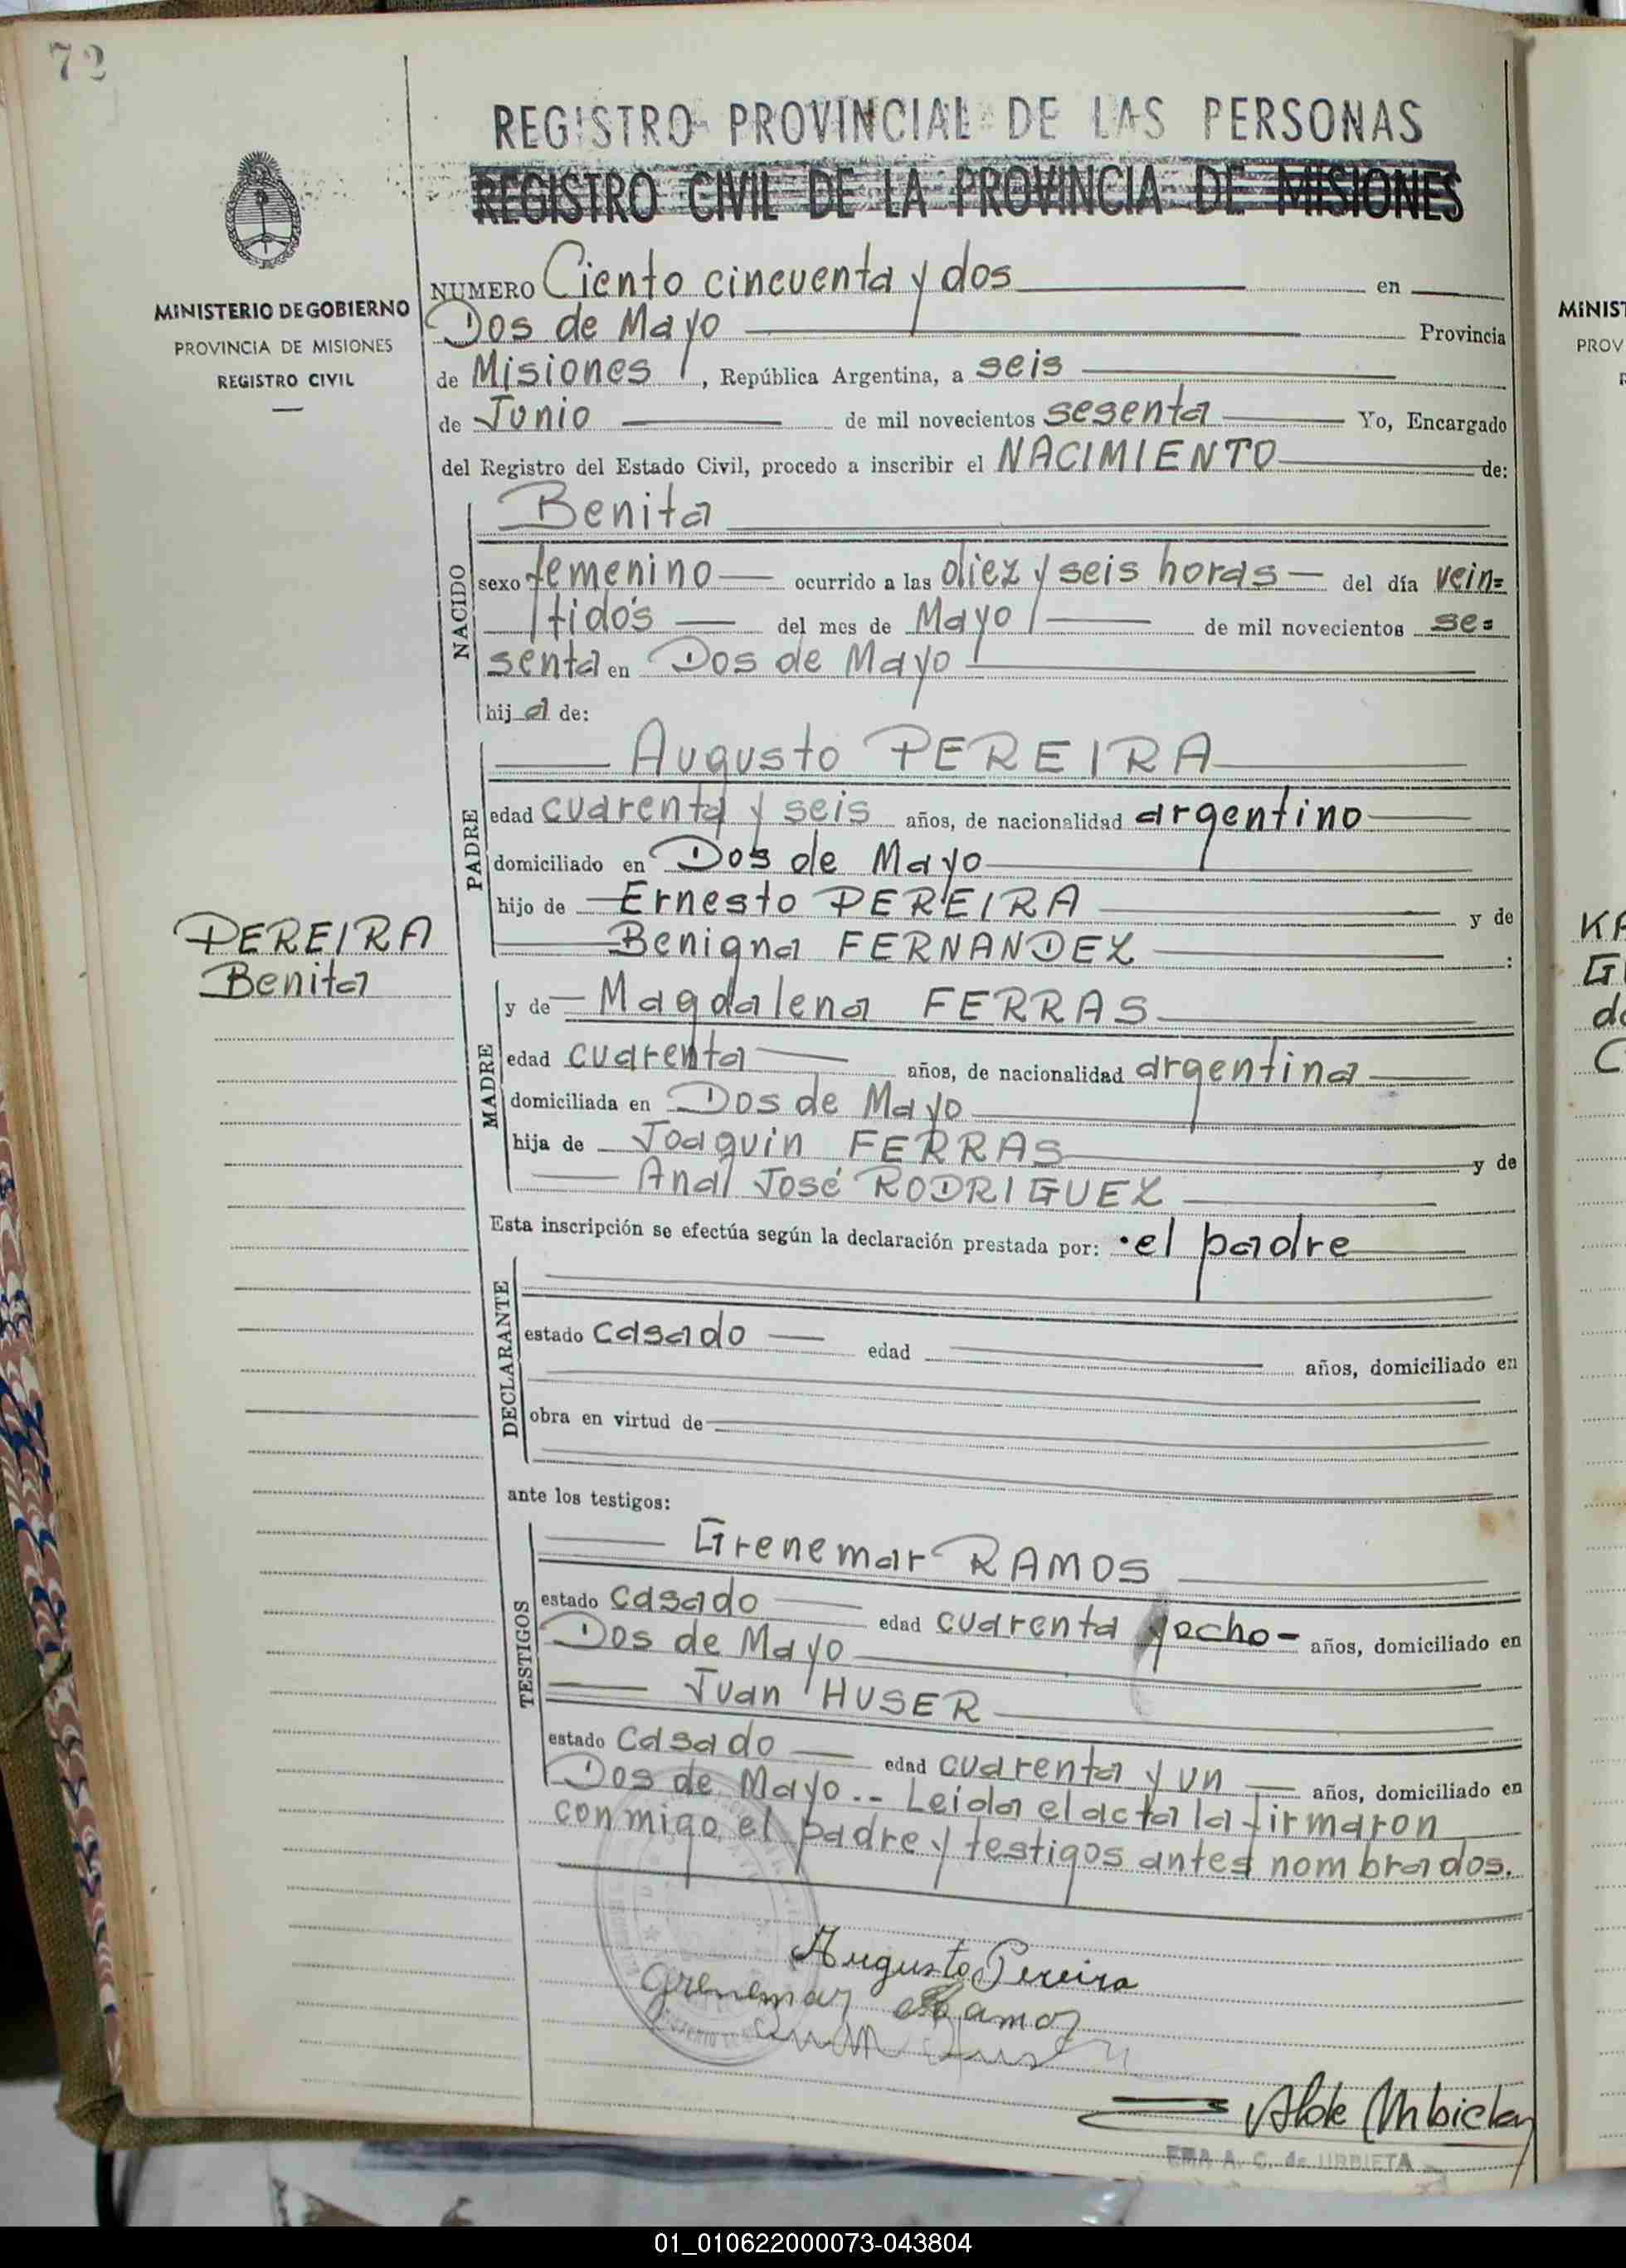 72
REGISTRO PROVINCIAL DE LAS PERSONAS
REGISTRO CIVIL DE LA PROVINCIA DE MISIONES
MINISTERIO DE GOBIERNO
PROVINCIA DE MISIONES
REGISTRO CIVIL
NUMERO Ciento cincuenta y dos en
Dos de Mayo Provincia
de Misiones, República Argentina, a seis
de Junio de mil novecientos sesenta Yo, Encargado
del Registro del Estado Civil, procedo a inscribir el NACIMIENTO de:
NACIDO
Benita
sexo femenino ocurrido a las diez y seis horas del día vein=
tidós del mes de Mayo de mil novecientos se=
senta en Dos de Mayo
hija de:
PADRE
Augusto PEREIRA
edad cuarenta y seis años, de nacionalidad argentino
domiciliado en Dos de Mayo
hijo de Ernesto PEREIRA y de
Benigna FERNANDEZ :
PEREIRA
Benita
MADRE
y de Magdalena FERRAS
edad cuarenta años, de nacionalidad argentina
domiciliada en Dos de Mayo
hija de Joaquin FERRAS y de
Ana José RODRIGUEZ
Esta inscripción se efectúa según la declaración prestada por: el padre
DECLARANTE
estado casado edad años, domiciliado en
obra en virtud de
ante los testigos:
TESTIGOS
Grenemar RAMOS
estado casado edad cuarenta y ocho años, domiciliado en
Dos de Mayo
Juan HUSER
estado casado edad cuarenta y un años, domiciliado en
Dos de Mayo.-- Leída el acta la firmaron
conmigo, el padre y testigos antes nombrados.
Augusto Pereira
Grenemar Ramos
EMA A. C. de URBIETA
MINIST
PROV
KA
G
do
C
01_010622000073-043804